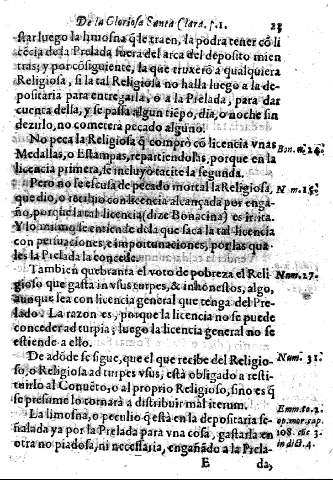 De la Gloriosa Santa Clara. §.1. 23
star luego la limosna q̃ le traen, la podra tener cõ li
cēcia de la Prelada fuera del arca del deposito mien
tras; y por cõsiguiente, la que truxerò a qualquiera
Religiosa, si la tal Religiosa no halla luego a la de-
positaria para entregarla, o a la Prelada, para dar
cuenta della, y se passa algun tiēpo, dia, o noche sin
dezirlo, no cometerà pecado alguno.
No peca la Religiosa q̃ comprò cõ licencia vnas
Medallas, o Estampas, repartiendolas, porque en la
licencia primera, se incluyò tacite la segunda.
Pero no se escusa de pecado mortal la Religiosa,
que dio, o recibio con licencia alcançada por enga-
ño, porque la tal licencia (dize Bonacina) es irrita.
Y lo mismo se entiende de la que saca la tal licencia
con persuaciones, e importunaciones, por las qua-
les la Prelada la concede.
Tambien quebranta el voto de pobreza el Reli
gioso que gasta in vsus turpes, & inhonestos, algo,
aunque sea con licencia general que tenga del Pre-
lado. La razon es, porque la licencia no se puede
conceder ad turpia; luego la licencia general no se
estiende a ello.
De adõde se sigue, que el que recibe del Religio-
so, o Religiosa ad turpes vsus, està obligado a resti-
tuirlo al Conuēto, o al proprio Religioso, sino es q̃
se presume lo tornarà a distribuir mal iterum.
La limosna, o peculio q̃ està en la depositaria se-
ñalada ya por la Prelada para vna cosa, gastarla en
otra no piadosa, ni necessaria, engañādo a la Prela-
E da,
Bon. n. 14.
N m. 15.
Num. 17.
Num. 31.
Emm. to. 2.
op. mor. sap.
108. clic 3.
in dict. 4.